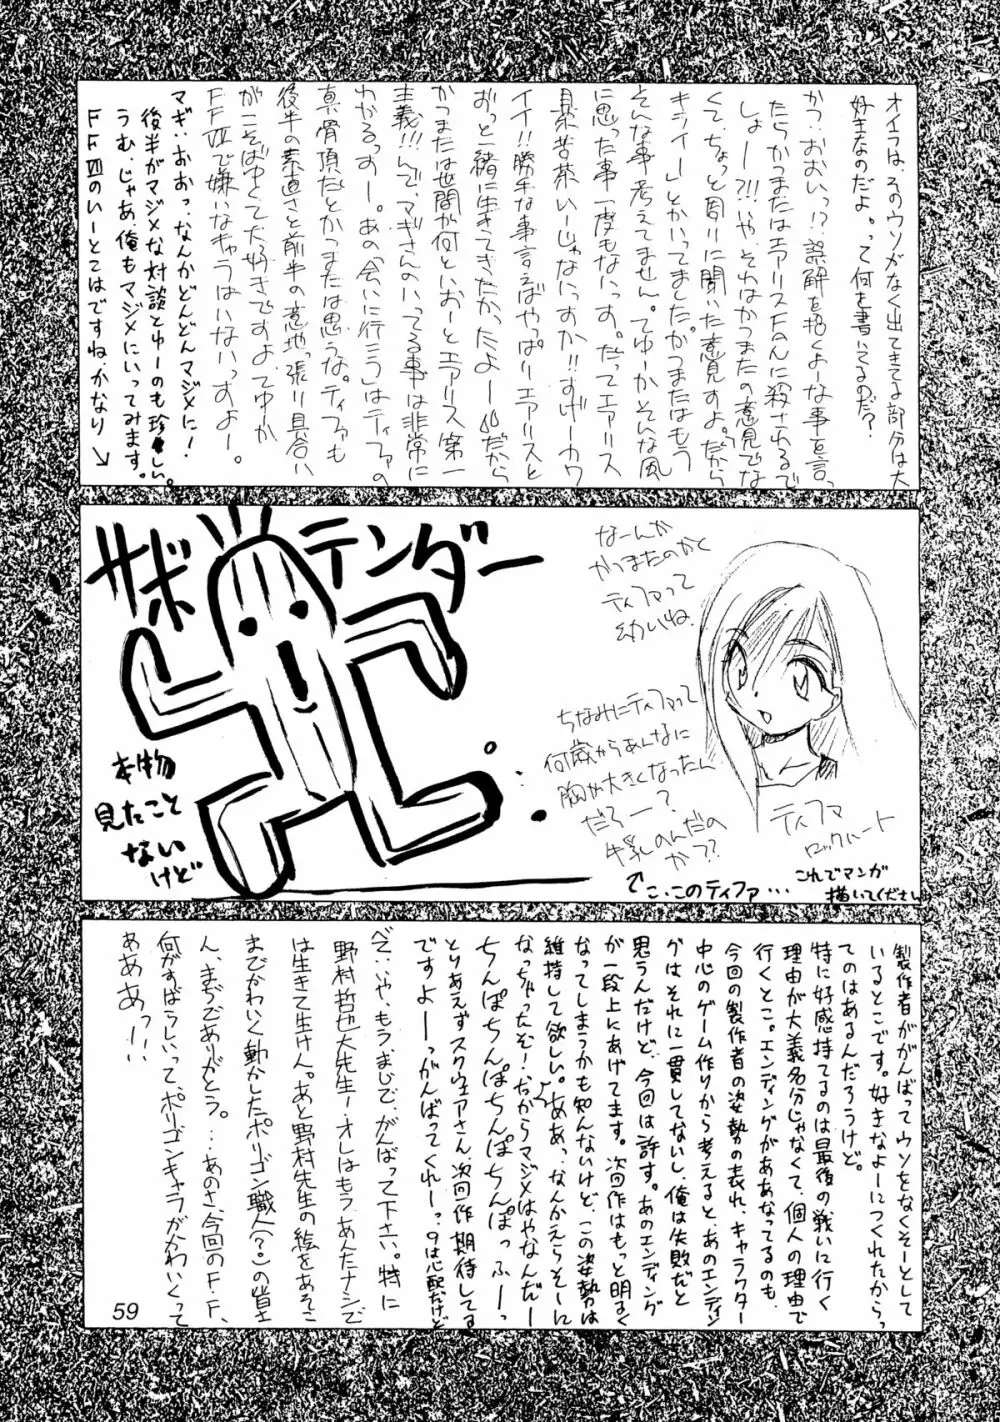 オイラは、そのウソがなく出てきてる部分は大
好きなのだよ。って何を書いてるのだ?
かつ:おおいっ!?誤解を招くよーな事を言っ
たらかつまたはエアリスFanに殺されるで
しょー?!!いや、それはかつまたの意見でな
くて、ちょっと周りに聞いた意見ですよ。だから
キライー」とかいってましたが、かつまたはもう
そんな事考えてません。てゆーかそんな風
に思った事一度もないっす。だってエアリス
具茶苦茶いーじゃないっすか!!すげーカワ
イイ!!勝手な事言えばやっぱりエアリスと
ずっと一緒に生きてきたかったよーだから
かつまたは世間が何といおーとエアリス第一
主義!!!んで、マギさんのいってる事は非常に
わかるっすー。あの「会いに行こう」はティファの
真骨頂だとかつまたは思うな。ティファも
後半の素直さと前半の意地っ張り具合い
がこそばゆくて大好きですよ。てゆか
FFⅦで嫌いなキャラはいないっすよー。
マギ:おおっ、なんかどんどんマジメに!
後半がマジメな対談とゆーのも珍しい。
うむ、じゃあ俺もマジメにいってみます。
FFⅦのいーとこはですね、かなり↘
サボテンダー
本物
見たこと
ないけど
なーんか
かつまたのかく
ティファって
幼いね。
ちなみにティファって
何歳からあんなに
胸が大きくなったん
だろー?
牛乳のんだの
か??
ティファ
ロックハート
こ、このティファ…
これでマンガ
描いてください
製作者ががんばってウソをなくそーとして
いるとこです。好きなよーにつくれたからっ
てのはあるんだろうけど。
特に好感持てるのは最後の戦いに行く
理由が大義名分じゃなくて、個人の理由で
行くとこ。エンディングがああなってるのも、
今回の製作者の姿勢の表れ、キャラクター
中心のゲーム作りから考えると、あのエンディン
グはそれに一貫してないし、俺は失敗だと
思うんだけど、今回は許す。あのエンディング
が一段上にあげてます。次回作はもっと明るく
なってしまうかも知んないけど、この姿勢は
維持して欲しい。ああっ、なんかえらそーに
なっちゃったぞ!だからマジメはやなんだー
ちんぽちんぽちんぽちんぽっ ふーっ
とりあえずスクウェアさん、次回作期待してる
ですよーっがんばってくれーっ、9は心配だけど
ペ:いや、もう、まじで、がんばって下さい。特に
野村哲也大先生ー。オレはもう、あんたナシで
は生きて生けん。あと野村先生の絵をあそこ
までかわいく動かしたポリゴン職人(?)の皆さ
ん、まぢでありがとう。…あのさ、今回のF.F.
何がすばらしいって、ポリゴンキャラがかわいくって
ああああっ!!!
59